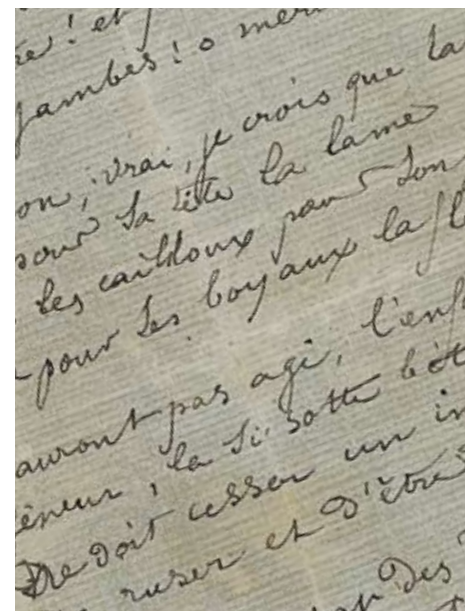 re! et
jambes! o mer
on, vrai, je crois que ta
pour sa tête la lame
les cailloux pour son
pour ses boyaux la fl
auront pas agi, l'enf
êneur, la si sotte bêt
Ne doit cesser un in
ruser et d'être
des